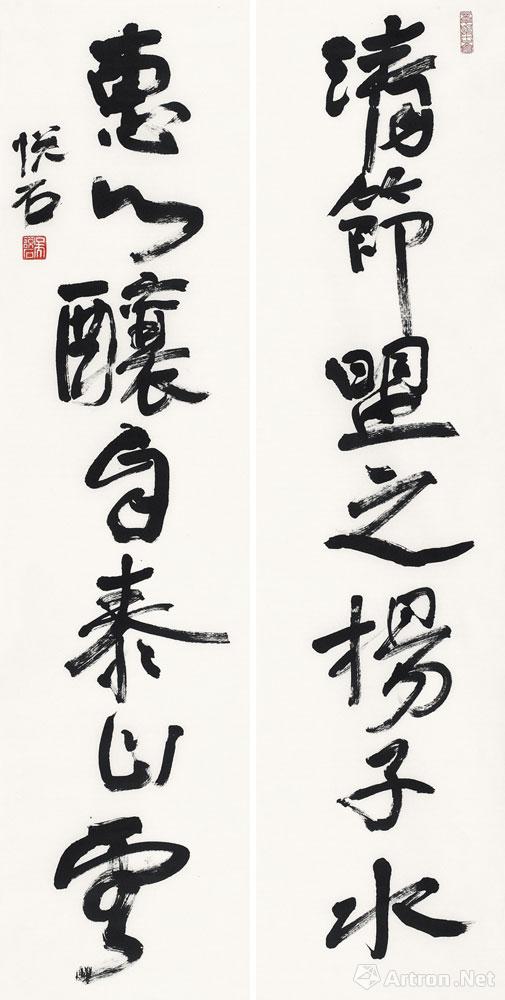 清節盟之揚子水
惠心釀自泰山雲
悦石
Artron.Net